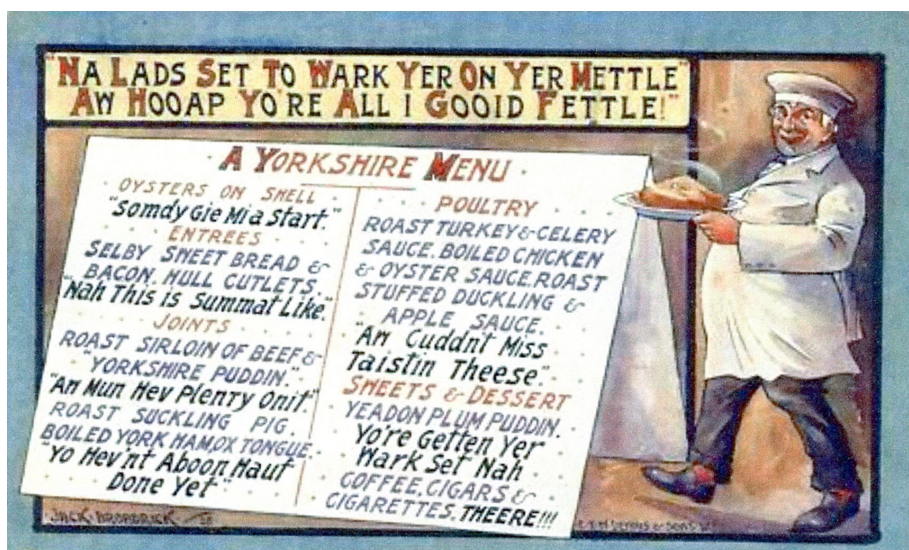 "NA LADS SET TO WARK YER ON YER METTLE"
AW HOOAP YO'RE ALL I GOOID FETTLE!"
A YORKSHIRE MENU
OYSTERS ON SHELL
"Somdy Gie Mi a Start."
ENTREES
SELBY SWEET BREAD &
BACON. HULL CUTLETS.
"Nah This is Summat Like."
JOINTS
ROAST SIRLOIN OF BEEF &
"YORKSHIRE PUDDIN."
"Aw Mun Hev Plenty Onit."
ROAST SUCKLING PIG.
BOILED YORK HAM, OX TONGUE.
"Yo Hev'nt Aboon Hauf
Done Yet"
POULTRY
ROAST TURKEY & CELERY
SAUCE. BOILED CHICKEN
& OYSTER SAUCE. ROAST
STUFFED DUCKLING &
APPLE SAUCE.
"Aw Cuddnt Miss
Taistin Theese".
SWEETS & DESSERT
YEADON PLUM PUDDIN.
Yo're Getten Yer
Wark Set Nah
COFFEE, CIGARS &
CIGARETTES. THEERE!!!
JACK BROADRICK
& SONS